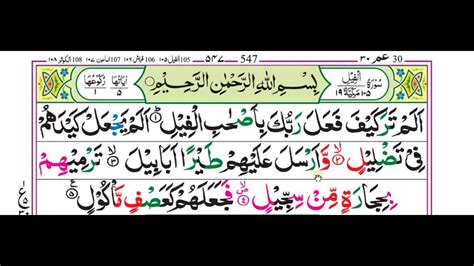 30 عم ٣٠ 547 ٥٤٧ 105 الفيل ١٠٥ 106 قريش ١٠٦ 107 الماعون ١٠٧ 108 الكوثر ١٠٨
سُوْرَةُ الْفِيْلِ ١٠٥ مَكِّيَّةٌ ١٩ بِسْمِ اللّٰهِ الرَّحْمٰنِ الرَّحِيْمِ اٰيَاتُهَا ٥ رُكُوْعُهَا ١
اَلَمْ تَرَ كَيْفَ فَعَلَ رَبُّكَ بِاَصْحٰبِ الْفِيْلِ ۝١ اَلَمْ يَجْعَلْ كَيْدَهُمْ
فِيْ تَضْلِيْلٍ ۝٢ وَّاَرْسَلَ عَلَيْهِمْ طَيْرًا اَبَابِيْلَ ۝٣ تَرْمِيْهِمْ
بِحِجَارَةٍ مِّنْ سِجِّيْلٍ ۝٤ فَجَعَلَهُمْ كَعَصْفٍ مَّاْكُوْلٍ ۝٥